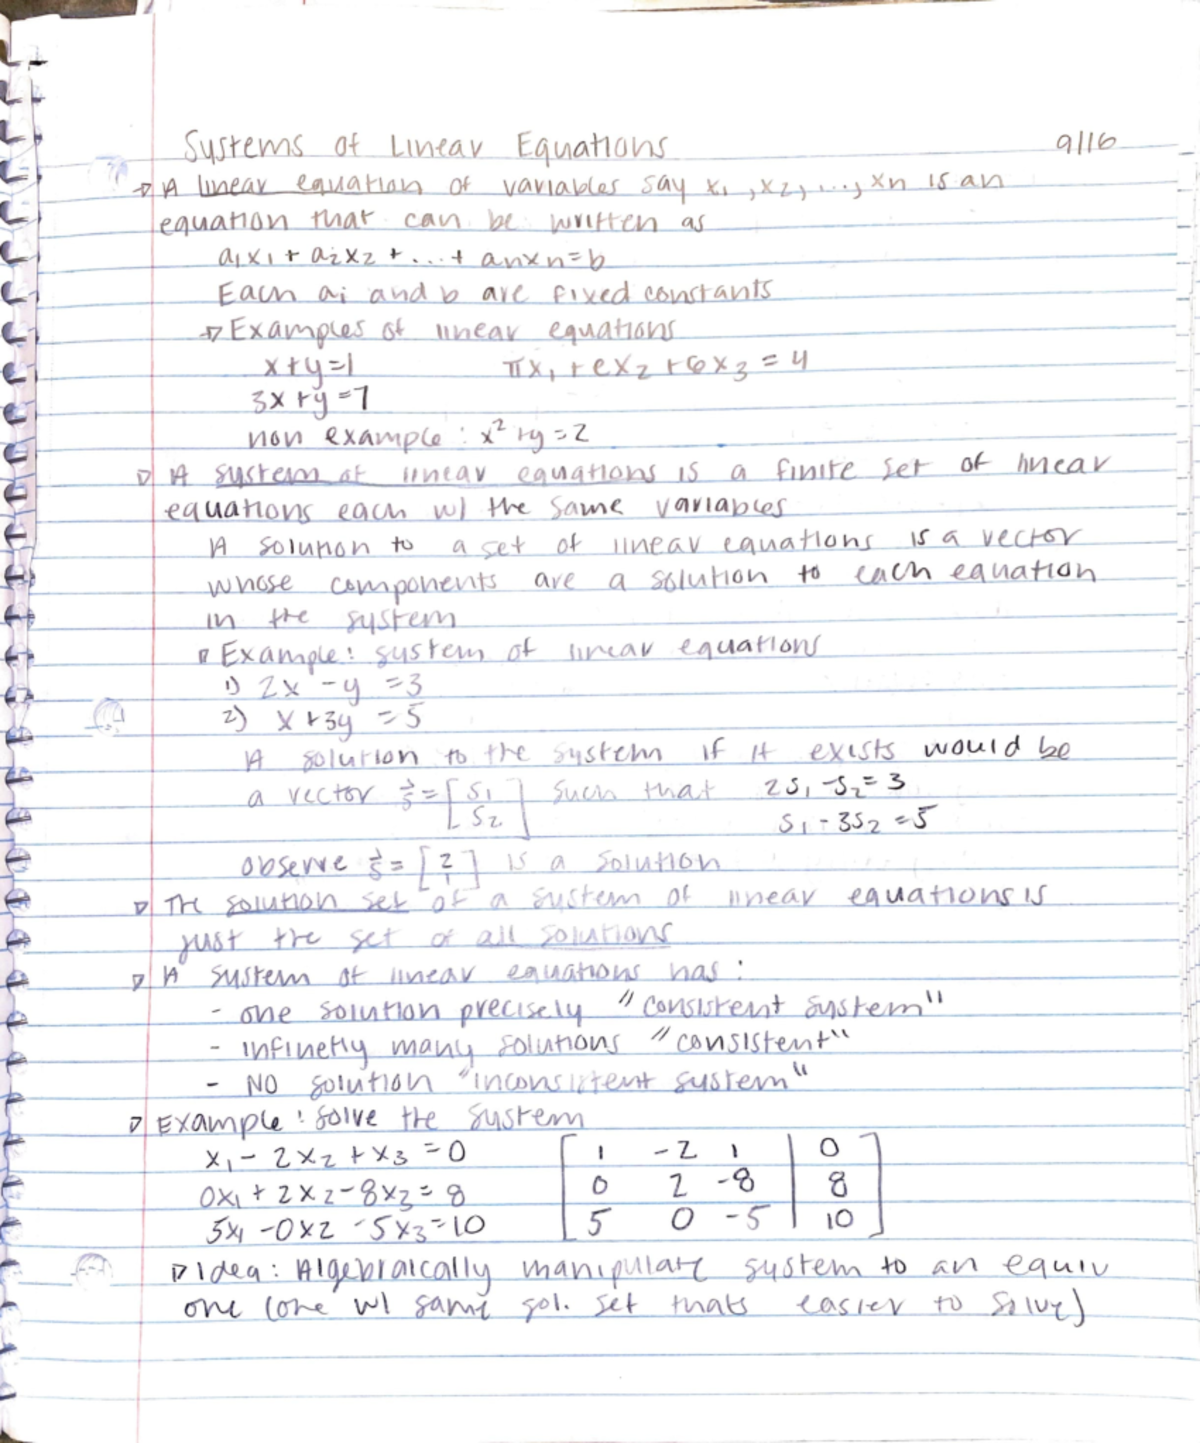 Systems of Linear Equations 9/16
A linear equation of variables say x₁, x₂, ..., xn is an
equation that can be written as
a₁x₁ + a₂x₂ + ... + anxn = b
Each ai and b are fixed constants
Examples of linear equations
x+y=1 πx₁ + ex₂ + 6x₃ = 4
3x+y=7
non example: x²+y=2
A system of linear equations is a finite set of linear
equations each w/ the same variables
A solution to a set of linear equations is a vector
whose components are a solution to each equation
in the system
Example: system of linear equations
1) 2x - y = 3
2) x + 3y = 5
A solution to the system if it exists would be
a vector s⃗ = [s₁ s₂] such that 2s₁ - s₂ = 3
s₁ - 3s₂ = 5
observe s⃗ = [2 1] is a solution
The solution set of a system of linear equations is
just the set of all solutions
A system of linear equations has:
- one solution precisely "consistent system"
- infinetly many solutions "consistent"
- No solution "inconsistent system"
Example: solve the system
x₁ - 2x₂ + x₃ = 0 [1 -2 1 | 0
0x₁ + 2x₂ - 8x₃ = 8 0 2 -8 | 8
5x₁ - 0x₂ - 5x₃ = 10 5 0 -5 | 10]
Idea: Algebraically manipulate system to an equiv
one (one w/ same sol. set thats easier to solve)